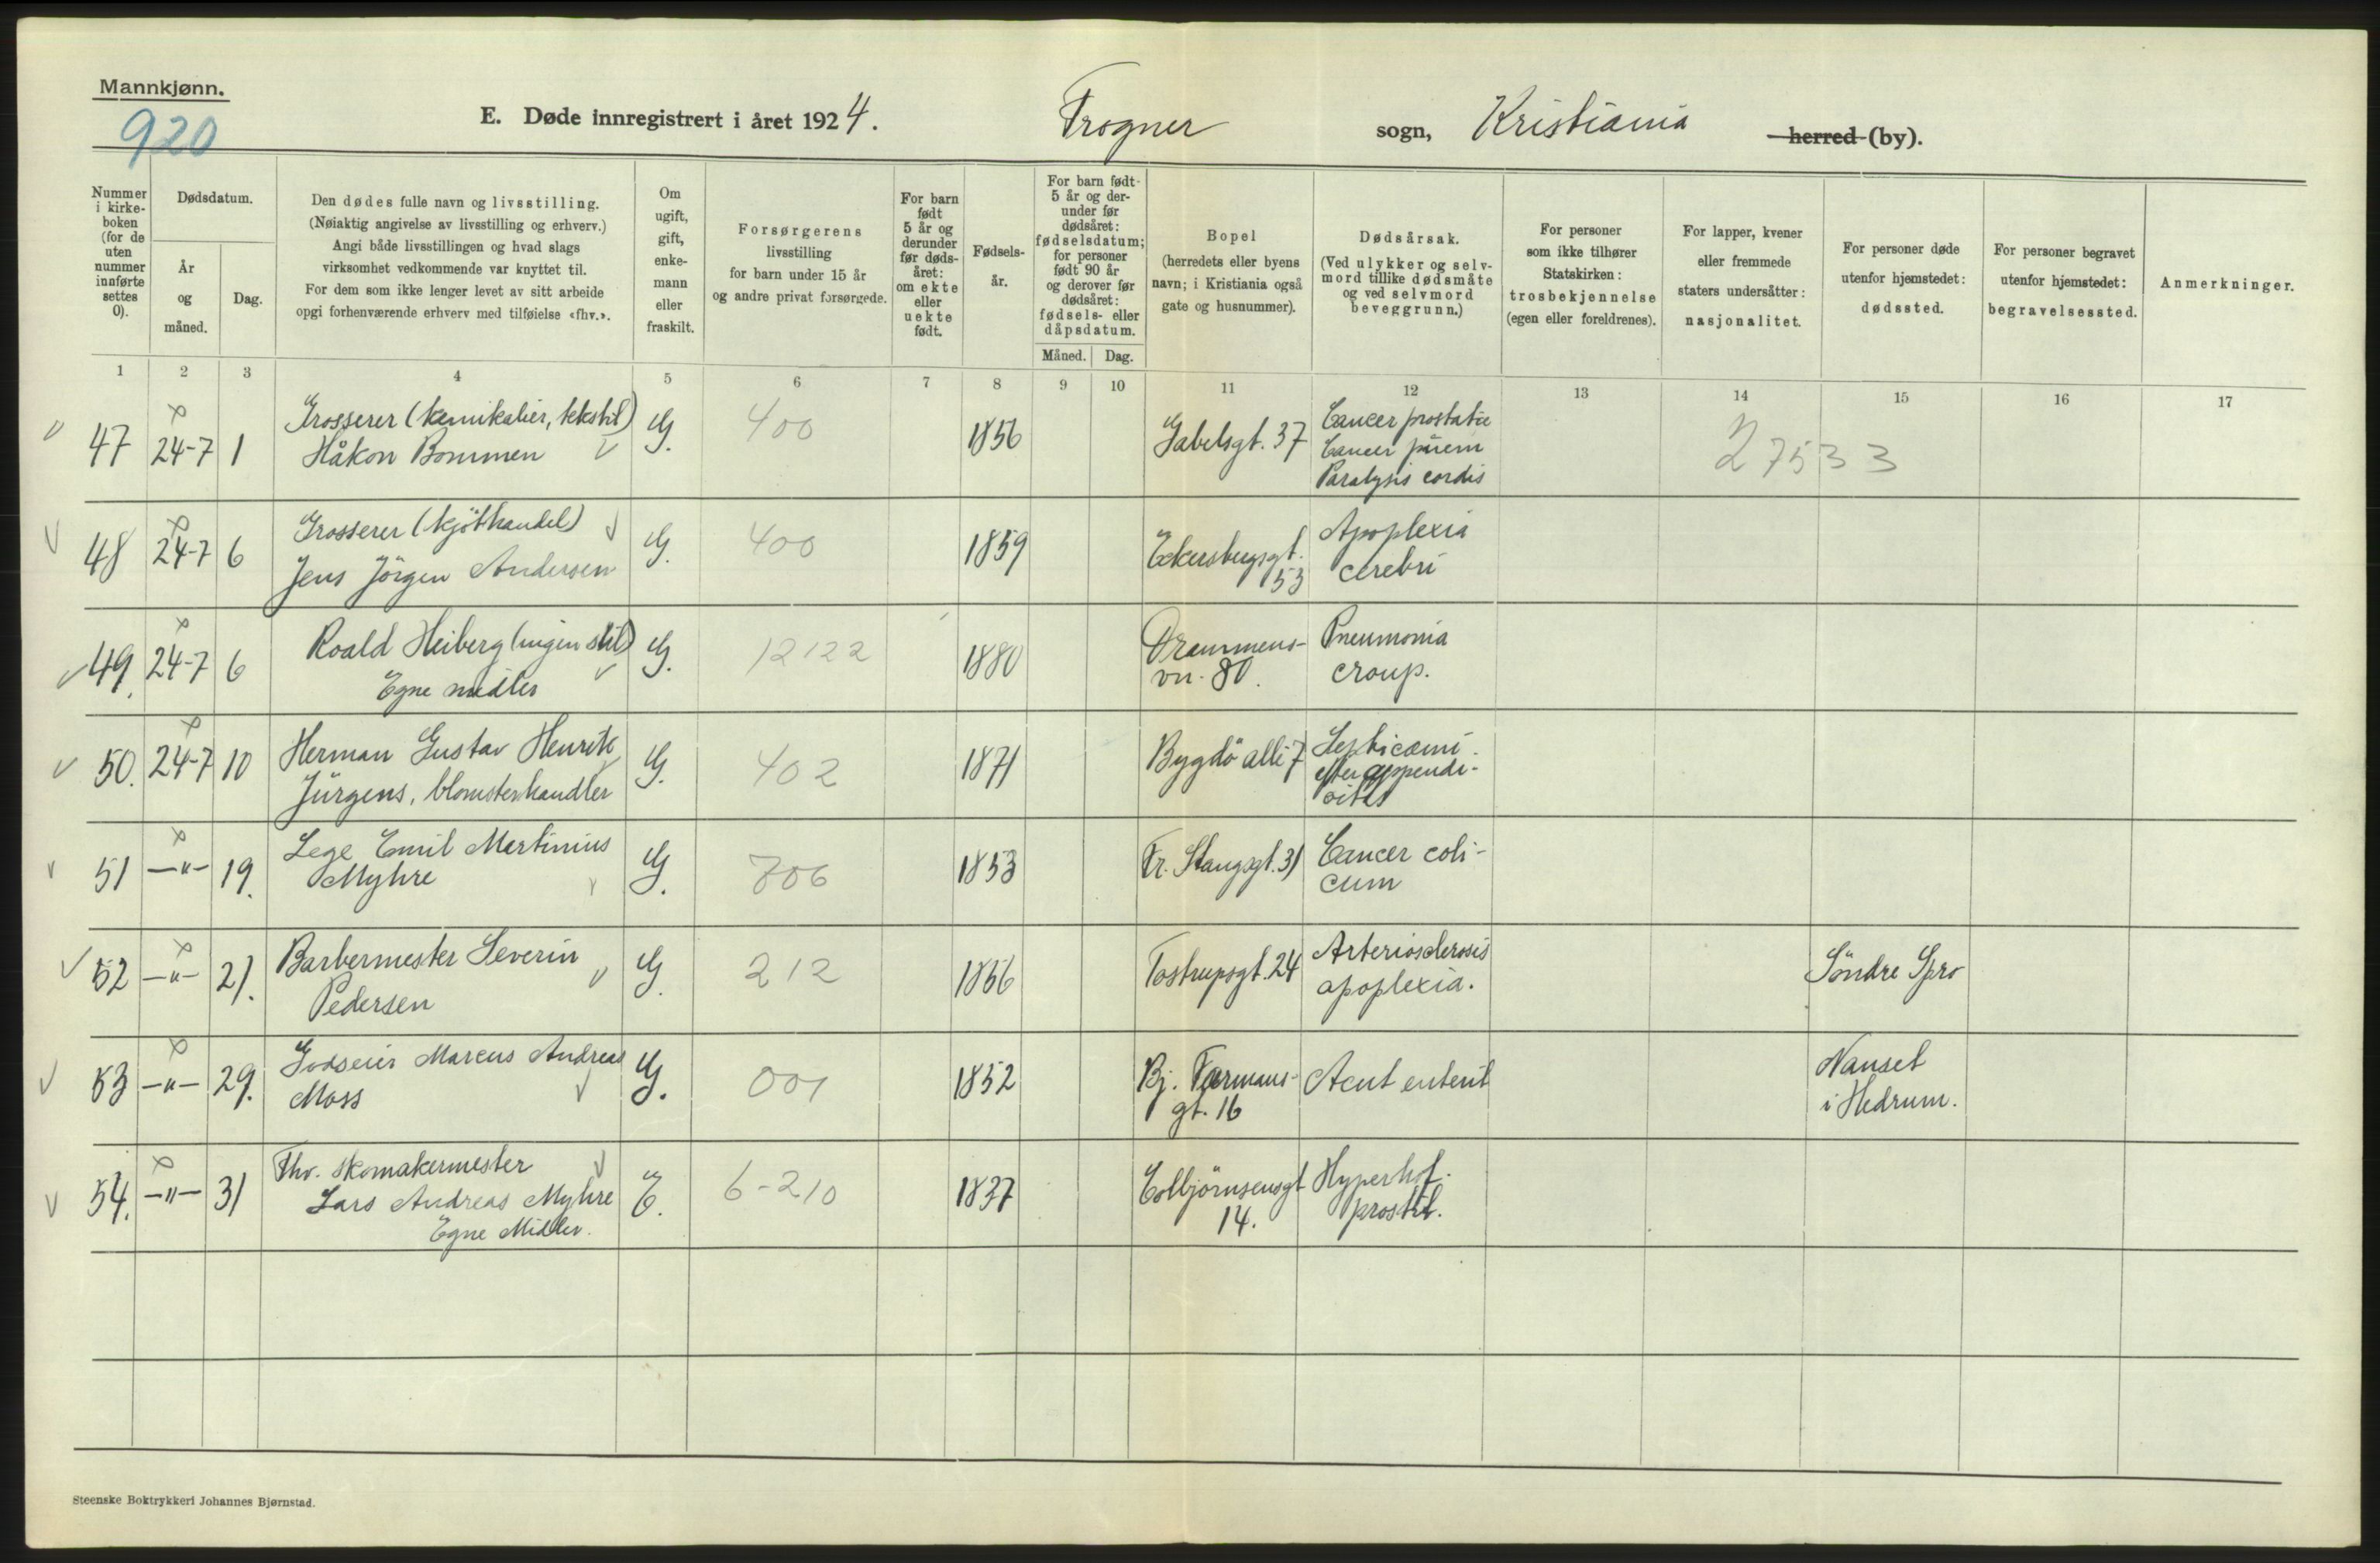 Mannkjønn.
920
E. Døde innregistrert i året 1924.
Frogner sogn, Kristiania herred (by).
Nummer i kirke-boken (for de uten nummer innførte settes 0).
Dødsdatum.
År og måned.
Dag.
Den dødes fulle navn og livsstilling.
(Nøiaktig angivelse av livsstilling og erhverv.)
Angi både livsstillingen og hvad slags
virksomhet vedkommende var knyttet til.
For dem som ikke lenger levet av sitt arbeide
opgi forhenværende erhverv med tilføielse «fhv.».
Om ugift, gift, enke-mann eller fraskilt.
Forsørgerens
livsstilling
for barn under 15 år
og andre privat forsørgede.
For barn født 5 år og derunder før døds-året: om ekte eller uekte født.
Fødsels-år.
For barn født 5 år og der-under før dødsåret: fødselsdatum; for personer født 90 år og derover før dødsåret: fødsels- eller dåpsdatum.
Måned. Dag.
Bopel
(herredets eller byens
navn; i Kristiania også
gate og husnummer).
Dødsårsak.
(Ved ulykker og selv-
mord tillike dødsmåte
og ved selvmord
beveggrunn.)
For personer
som ikke tilhører
Statskirken:
trosbekjennelse
(egen eller foreldrenes).
For lapper, kvener
eller fremmede
staters undersåtter:
nasjonalitet.
For personer døde
utenfor hjemstedet:
dødssted.
For personer begravet
utenfor hjemstedet:
begravelsessted.
Anmerkninger.
1 2 3 4 5 6 7 8 9 10 11 12 13 14 15 16 17
47 24-7 1
Grosserer (kemikalier, tekstil)
Håkon Bommen
G. 400 1856
Gabelsgt. 37
Cancer prostatae
Cancer
Paralysis cordis
27533
48 24-7 6
Grosserer (kjøtthandel)
Jens Jörgen Andersen
G. 400 1859
Eckersbergsgt.
53
Apoplexia
cerebri
49. 24-7 6
Roald Heiberg (ingen stil)
Egne midler
G. 12122 1880
Drammens-
vn. 80.
Pneumonia
croup.
50. 24-7 10
Herman Gustav Henrik
Jürgens, blomsterhandler
G. 402 1871
Bygdö allé 7
Septicæmi
efter appendi-
citis
51 —"— 19.
Lege Emil Martinius
Myhre
G. 706 1853
Fr. Stangsgt. 31
Cancer coli-
cum
52 —"— 21.
Barbermester Severin
Pedersen
G. 212 1866
Tostrupsgt. 24
Arteriosclerosis
apoplexia.
Söndre Spro
53 —"— 29.
Godseier Marcus Andreas
Moss
G. 001 1852
Bj. Farmans-
gt. 16
Acut enterit
Nanset
i Hedrum.
54. —"— 31
Fhv. skomakermester
Lars Andreas Myhre
Egne Midler.
E. 6-210 1837
Colbjörnsensgt
14.
Hypertrof.
prostat.
Steenske Boktrykkeri Johannes Bjørnstad.